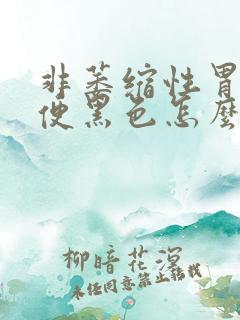 非萎缩性胃
便黑色怎麽
柳暗花溟
未经同意禁止转载